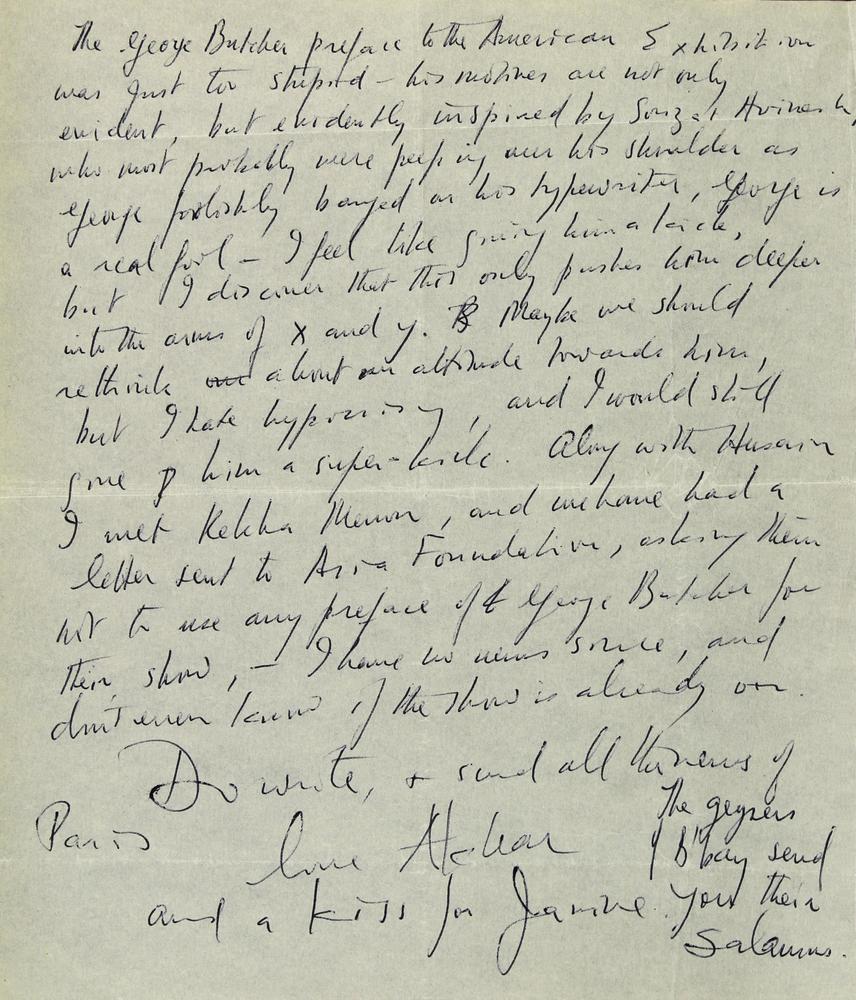 The George Butcher preface to the American Exhibition
was just too stupid – his motives are not only
evident, but evidently inspired by Souza + Avinash,
who most probably were peeping over his shoulder as
George foolishly banged on his typewriter, George is
a real fool – I feel like giving him a kick,
but I discover that this only pushes him deeper
into the arms of X and Y. Maybe we should
rethink about our attitude towards him,
but I hate hypocrisy, and I would still
give him a super-kick. Along with Husain
I met Rekha Menon, and we have had a
letter sent to Asia Foundation, asking them
not to use any preface of George Butcher for
their show, – I have no news since, and
don't even know if the show is already on.
Do write, + send all the news of
Paris
love Akbar
and a kiss for Janine.
The geysers
of B'bay send
you their
Salaams.